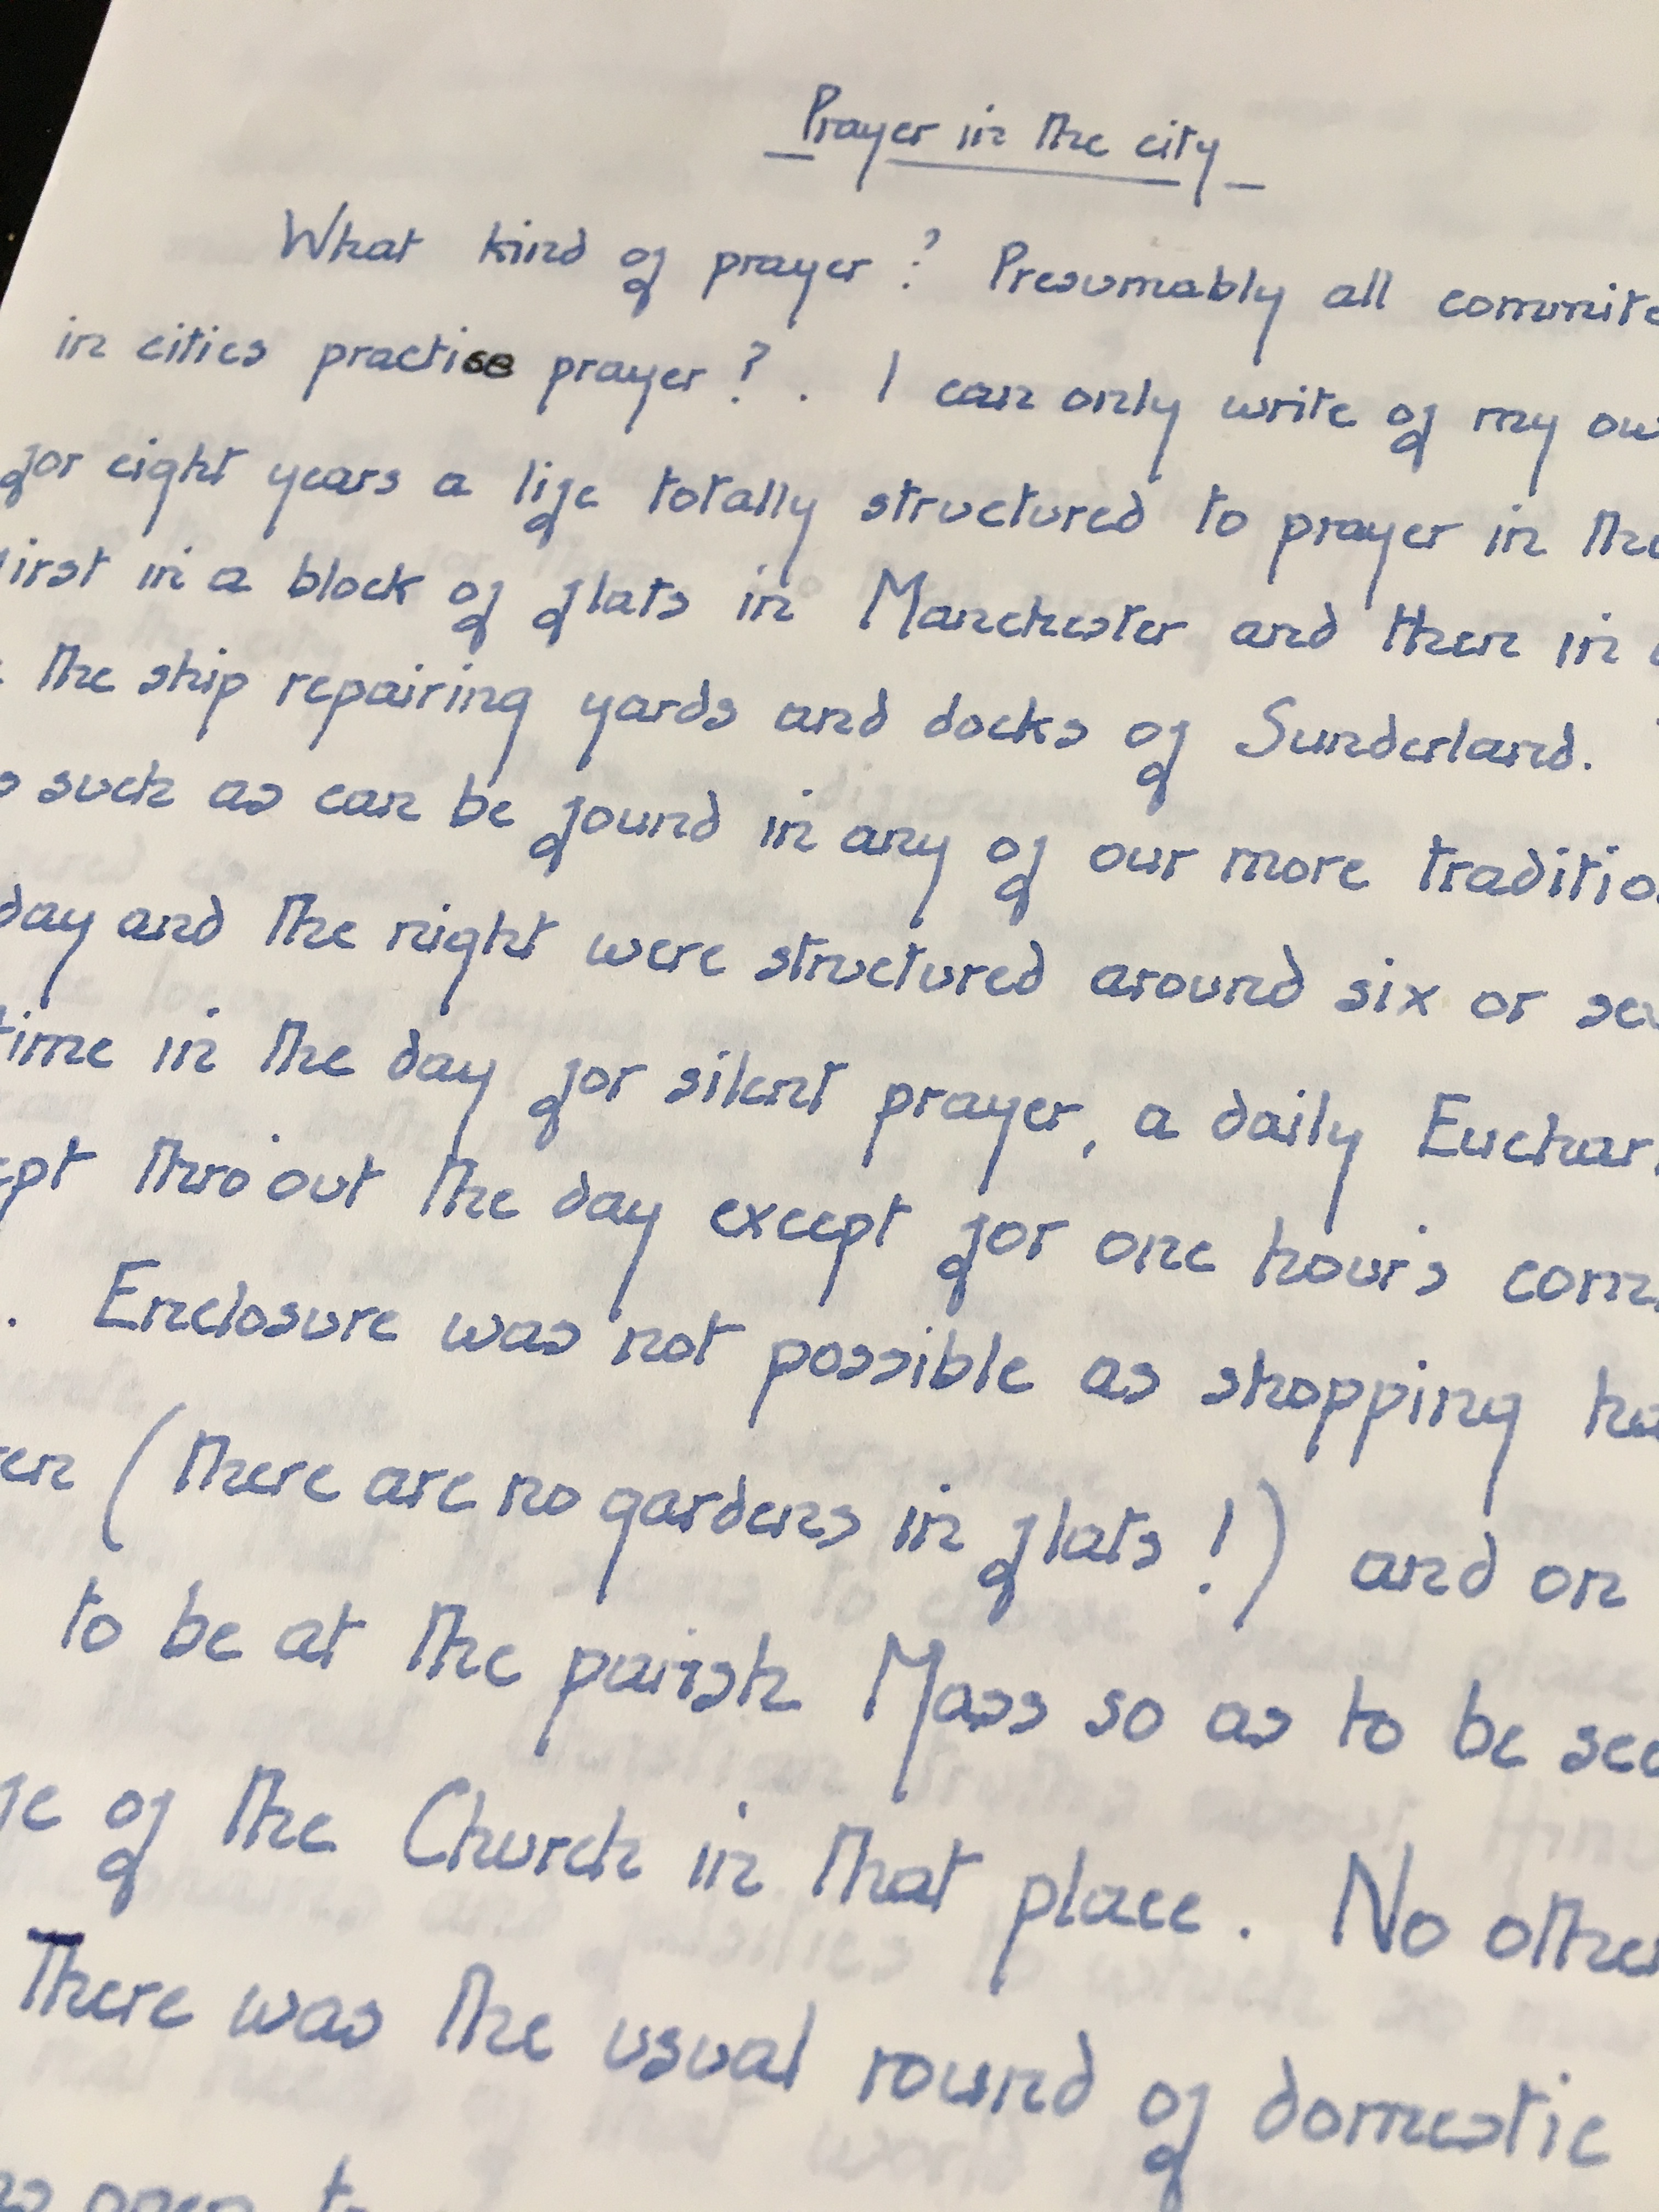 Prayer in the city
What kind of prayer? Presumably all commite
in cities practise prayer?. I can only write of my ow
for eight years a life totally structured to prayer in the
first in a block of flats in Manchester and then in
the ship repairing yards and docks of Sunderland.
such as can be found in any of our more traditio
day and the night were structured around six or se
time in the day for silent prayer, a daily Euchar
ept thro'out the day except for one hour's com
. Enclosure was not possible as shopping ha
en (there are no gardens in flats!) and on
to be at the parish Mass so as to be see
of the Church in that place. No othe
There was the usual round of domestic
open to